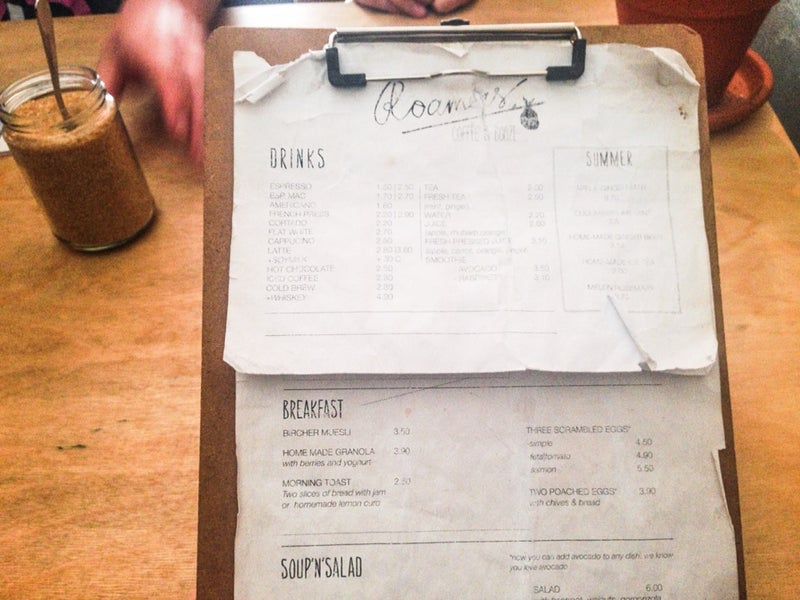 Roamers
COFFEE & BOOZE
DRINKS
ESPRESSO 1.50 | 2.50
ESP. MAC 1.70 | 2.70
AMERICANO 1.60
FRENCH PRESS
CORTADO
FLAT WHITE 2.70
CAPPUCINO
LATTE
+ SOYMILK
HOT CHOCOLATE 2.50
ICED COFFEE 2.80
COLD BREW 2.80
+WHISKEY 4.90
TEA
FRESH TEA
(mint, ginger)
WATER 2.20
JUICE
(apple, rhubarb, orange)
FRESH PRESSED JUICE
(apple, carrot, orange, ginger)
SMOOTHIE
- AVOCADO 3.50
- RASPBERRY
SUMMER
HOME-MADE GINGER BEER
HOME-MADE ICE TEA
BREAKFAST
BIRCHER MUESLI 3.50
HOME MADE GRANOLA 3.90
with berries and yoghurt
MORNING TOAST 2.50
Two slices of bread with jam
or homemade lemon curd
THREE SCRAMBLED EGGS*
-simple 4.50
-feta/tomato 4.90
-salmon 5.50
TWO POACHED EGGS* 3.90
with chives & bread
*now you can add avocado to any dish. we know
you love avocado
SOUP'N'SALAD
SALAD 6.00